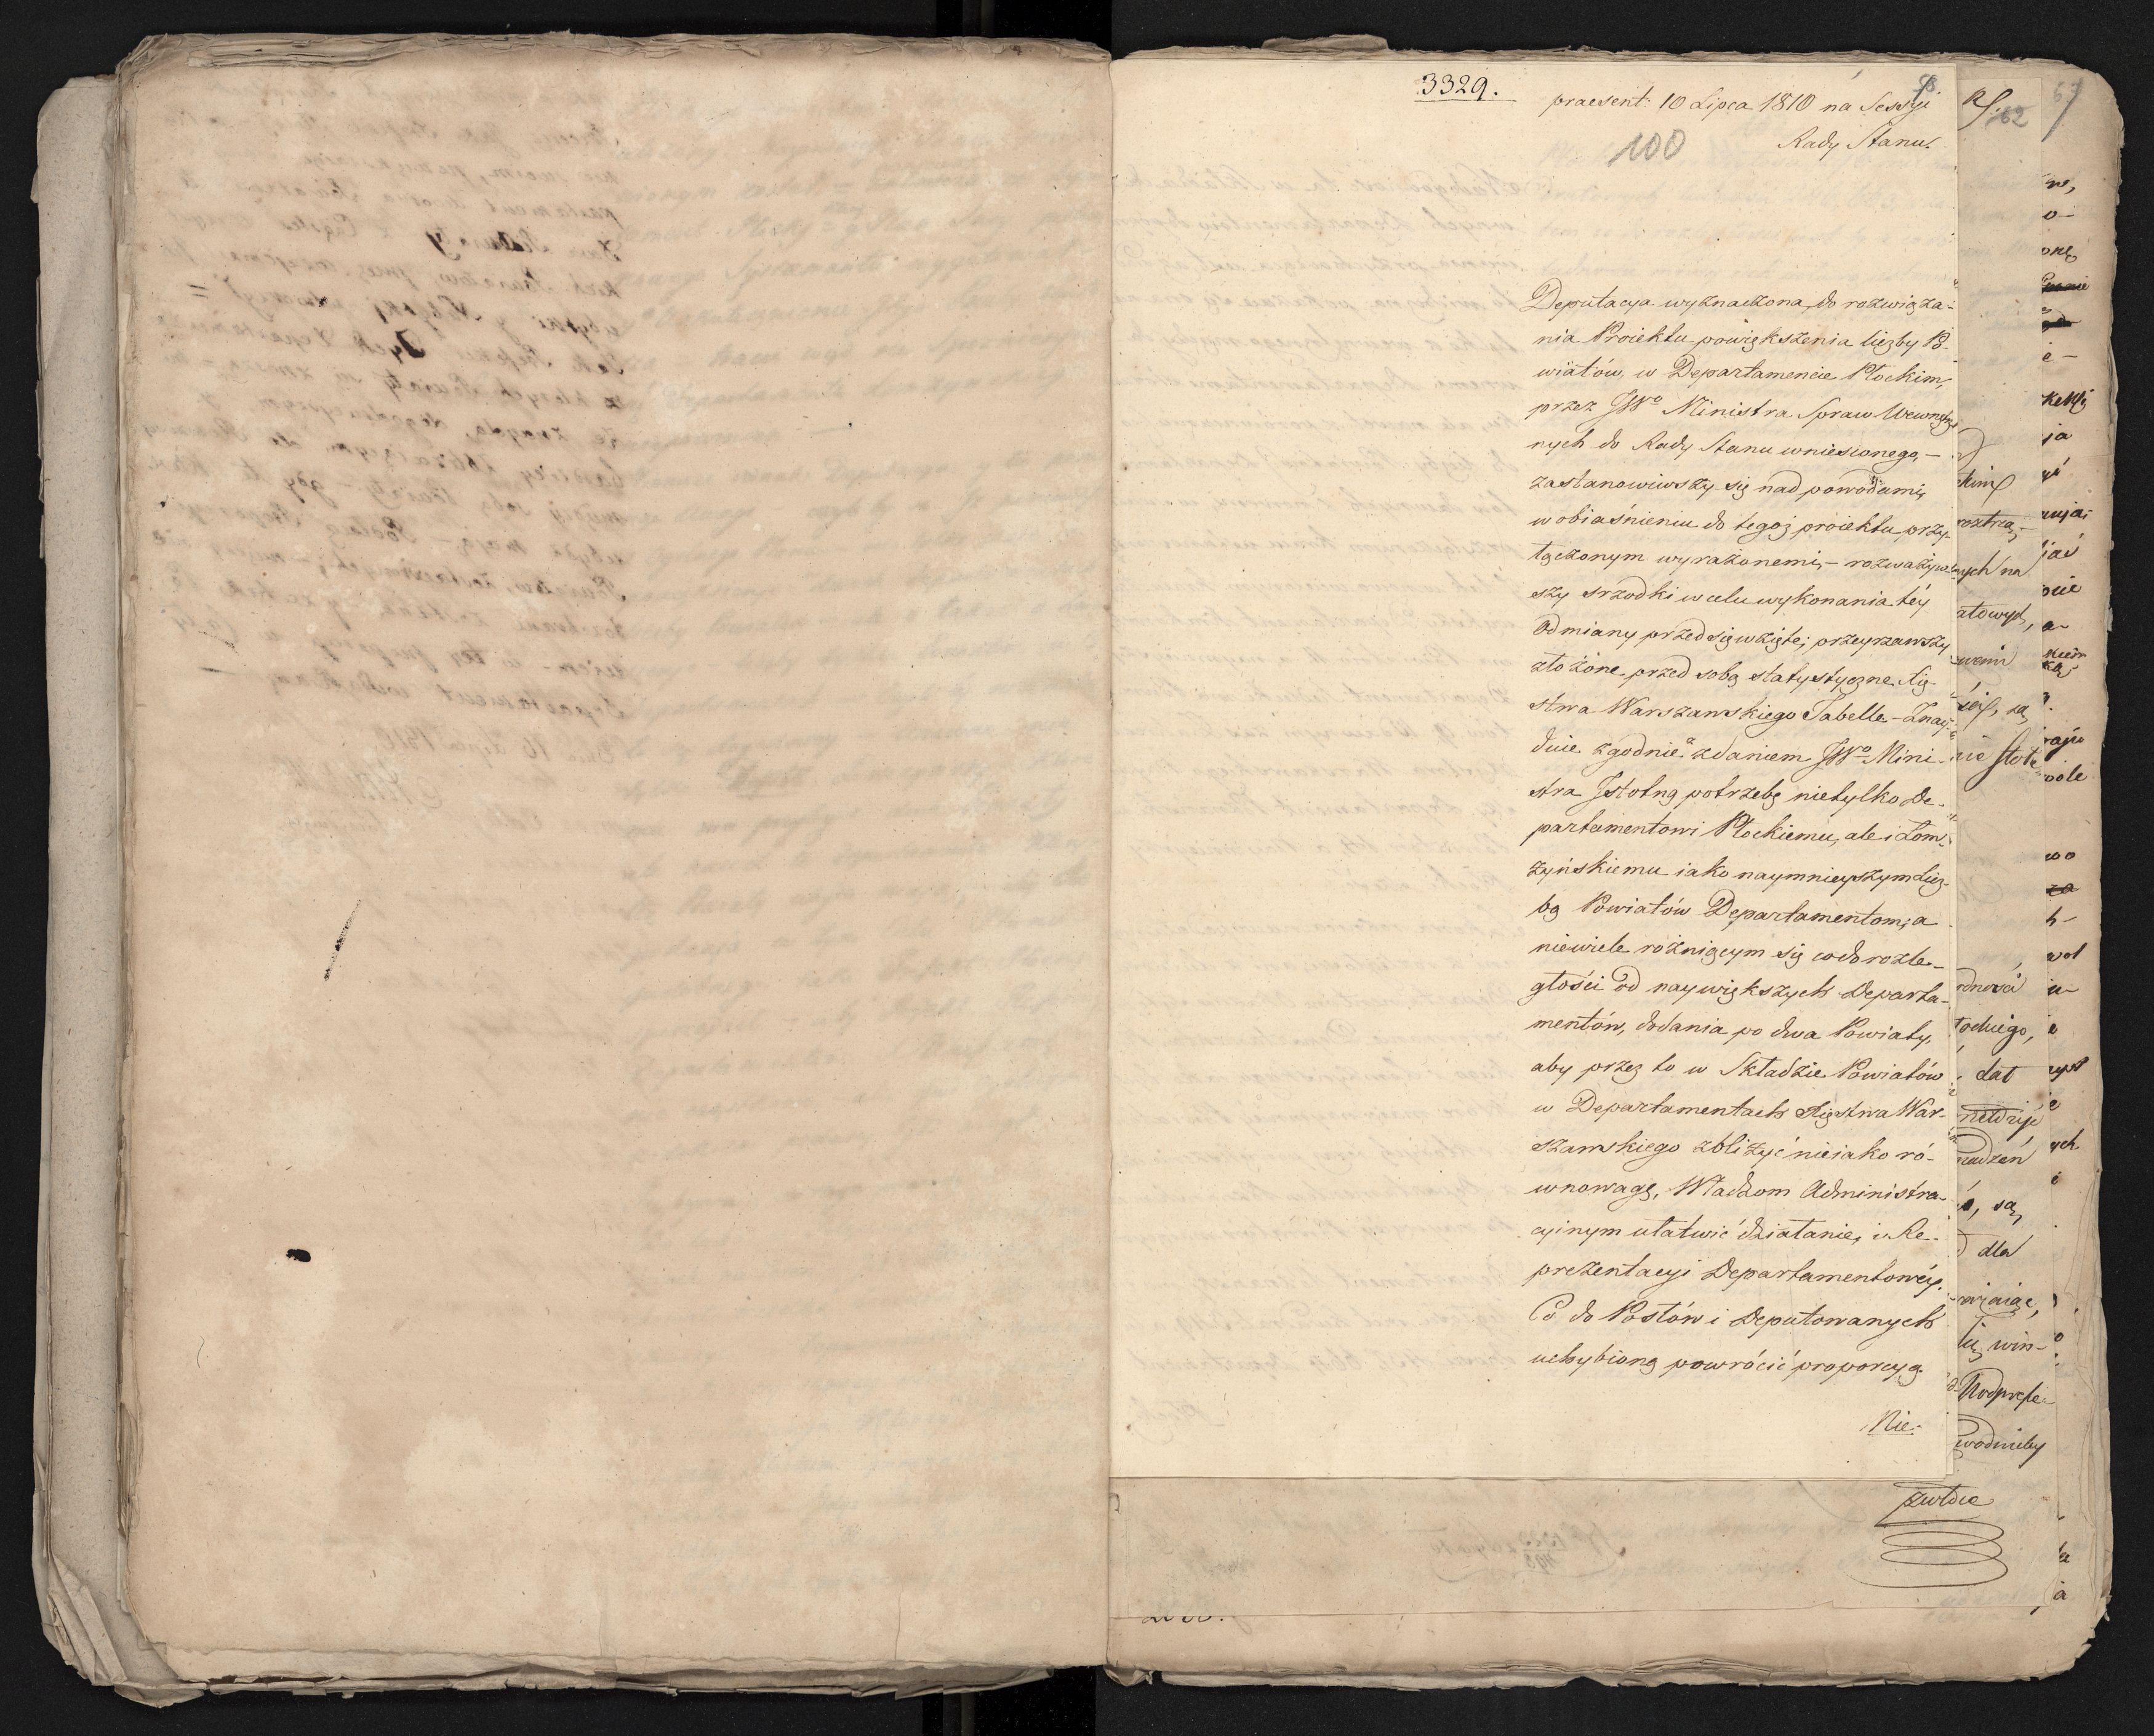 3329.
58.
praesent: 10 Lipca 1810 na Sessyi
100
Rady Stanu.
Deputacya wyznaczona do rozwiąza-
nia Proiektu powiększenia liczby Po-
wiatów, w Departamencie Płockim,
przez JWo Ministra Spraw Wewnętrz-
nych do Rady Stanu wniesionego, -
zastanowiwszy się nad powodami,
w obiaśnieniu do tegoż proiektu przy-
łączonym wyrażonemi, - rozważyw-
szy srzodki w celu wykonania téy
Odmiany przedsięwzięte; przeyrzawszy
złożone przed sobą statystyczne Xię-
stwa Warszawskiego Tabelle - Znay-
duie zgodnie z zdaniem JWo Mini-
stra Jstotną potrzebę nietylko De-
partamentowi Płockiemu, ale i Łom-
żyńskiemu iako naymnieyszym Licz-
bą Powiatów Departamentom, a
niewiele rożniącym się co do rozle-
głości od naywiększych Departa-
mentów, dodania po dwa Powiaty,
aby przez to w Składzie Powiatów
w Departamentach Xięstwa War-
szawskiego zbliżyć nieiako ró-
wnowagę, Władzom Administra-
cyinym ułatwić działanie, i Re-
prezentacyi Departamentowéy.
Co do Posłów i Deputowanych
uchybioną powrócić proporcyą.
Nie-
62
kim
roztrzą-
nych na
atowych,
są
nie
rdnosci
ockiego,
dat
nadzeń
są
dla
win-
Podprefe-
wodniby
w,
o-
ja
jaś
a-
wo
h-
wol
u-
ych
a